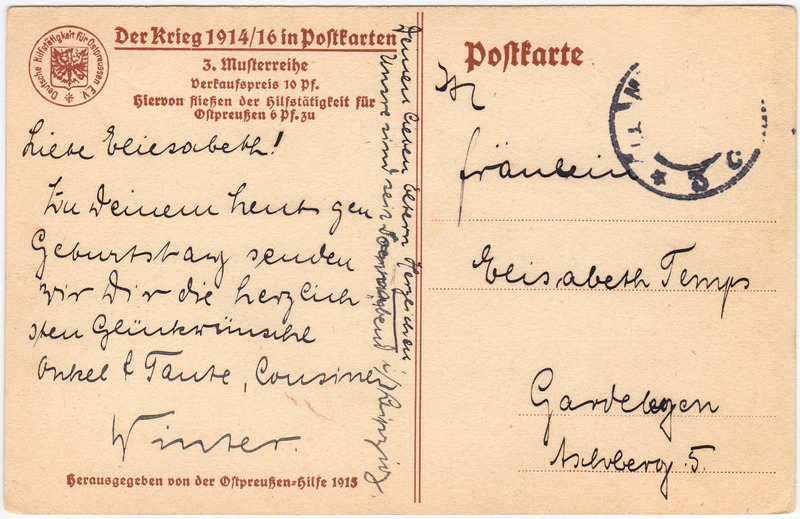 Deutsche Hilfstätigkeit für Ostpreussen E.V.
Der Krieg 1914/16 in Postkarten
3. Musterreihe
Verkaufspreis 10 Pf.
Hiervon fließen der Hilfstätigkeit für
Ostpreußen 6 Pf. zu
Liebe Eliesabeth!
Zu Deinem heut gen
Geburtstag senden
wir Dir die herzlich
sten Glückwünsche
Onkel & Tante, Cousinen
Winter.
Herausgegeben von der Ostpreußen-Hilfe 1915
Deinen lieben Eltern Herzlichen
Unsre sind seit Sonnabend i/Leipzig.
Postkarte
Fräulein
Elisabeth Temps
Gardelegen
5.